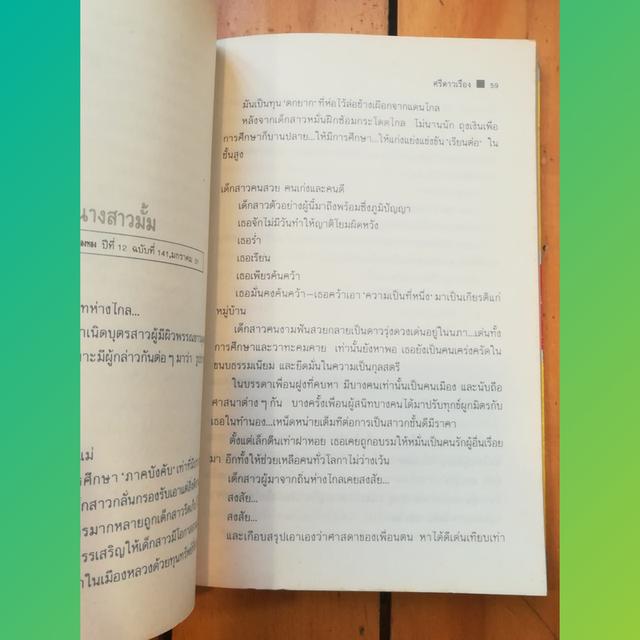 นางสาวมั้ม
ปีที่ 12 ฉบับที่ 141,มกราคม 31
ห่างไกล...
เนิดบุตรสาวผู้มีผิวพรรณ
าะมีผู้กล่าวกันต่อ ๆ มาว่า
แม่
รศึกษา 'ภาคบังคับ' เท่าที่
ด็กสาวกลั่นกรองรับเอาแต่สิ่ง
รมากหลายถูกเด็กสาว
รรเสริญให้เด็กสาวมีโอกาส
าในเมืองหลวงด้วยทุนทรัพย์
ศรีดาวเรือง ■ 59
มันเป็นทุน 'ตกยาก' ที่ห่อไว้ล่อช้างเผือกจากแดนไกล
หลังจากเด็กสาวหมั่นฝึกซ้อมกระโดดไกล ไม่นานนัก ถุงเงินเพื่อ
การศึกษาก็บานปลาย...ให้มีการศึกษา...ให้แก่งแย่งแข่งขัน 'เรียนต่อ' ใน
ชั้นสูง
เด็กสาวคนสวย คนเก่งและคนดี
เด็กสาวตัวอย่างผู้นี้มาถึงพร้อมซึ่งภูมิปัญญา
เธอจักไม่มีวันทำให้ญาติโยมผิดหวัง
เธอร่ำ
เธอเรียน
เธอเพียรค้นคว้า
เธอมั่นคงค้นคว้า—เธอคว้าเอา 'ความเป็นที่หนึ่ง' มาเป็นเกียรติแก่
หมู่บ้าน
เด็กสาวคนงามฟันสวยกลายเป็นดาวรุ่งดวงเด่นอยู่ในนภา...เด่นทั้ง
การศึกษาและวาทะคมคาย เท่านั้นยังหาพอ เธอยังเป็นคนเคร่งครัดใน
ขนบธรรมเนียม และยึดมั่นในความเป็นกุลสตรี
ในบรรดาเพื่อนฝูงที่คบหา มีบางคนเท่านั้นเป็นคนเมือง และนับถือ
ศาสนาต่าง ๆ กัน บางครั้งเพื่อนผู้สนิทบางคนได้มาปรับทุกข์ผูกมิตรกับ
เธอในทำนอง...เหน็ดหน่ายเต็มทีต่อการเป็นสาวกชั้นดีมีราคา
ตั้งแต่เล็กตีนเท่าฝาหอย เธอเคยถูกอบรมให้หมั่นเป็นคนรักผู้อื่นเรื่อย
มา อีกทั้งให้ช่วยเหลือคนทั่วโลกาไม่ว่างเว้น
เด็กสาวผู้มาจากถิ่นห่างไกลเคยสงสัย...
สงสัย...
สงสัย...
และเกือบสรุปเอาเองว่าศาสดาของเพื่อนตน หาได้ดีเด่นเทียบเท่า